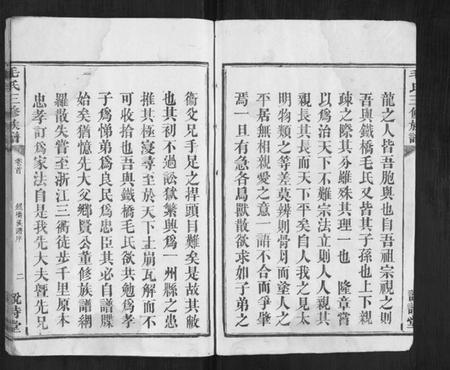 毛氏三修族譜
龍之人皆吾胞與也自吾祖宗視之則
吾與鐵橋毛氏又皆其子孫也上下親
疎之際其分雖殊其理一也 隆章嘗
以為治天下不難宗法立則人人親其
親長其長而天下平矣自人我之見太
明物類之等差莫辨則骨月而塗人之
平居無相親愛之意一語不合而爭肇
焉一旦有急各鳥獸散欲求如子弟之
衞父兄手足之捍頭目難矣是故其敝
也其初不過訟獄繁興為一州縣之患
推其極寖尋至於天下土崩瓦解而不
可收拾也吾與鐵橋毛氏欲共勉為孝
子為悌弟為良民為忠臣其必自譜牒
始矣猶憶先大父鄉賢公董修族譜網
羅散失嘗至浙江三衢徒步千里原本
忠孝訂為家法自是我先大夫曁先兄
毛氏三修族譜
卷首
二
說詩堂